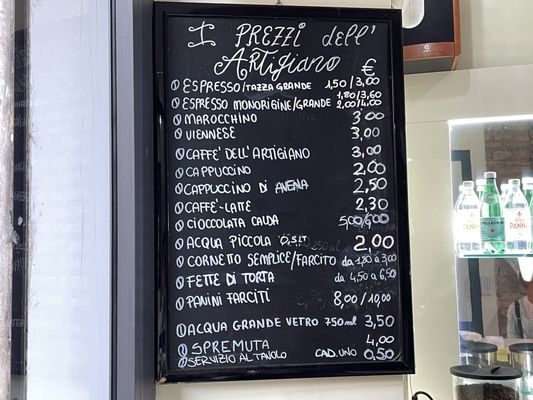 I PREZZI dell'
ARTIGIANO €
ESPRESSO/TAZZA GRANDE 1,50/3,00
1,80/3,60
ESPRESSO MONORIGINE/GRANDE 2,00/4,00
MAROCCHINO 3,00
VIENNESE 3,00
CAFFE' DELL'ARTIGIANO 3,00
CAPPUCCINO 2,00
CAPPUCCINO DI AVENA 2,50
CAFFE'-LATTE 2,30
CIOCCOLATA CALDA 5,00/6,00
ACQUA PICCOLA 2,00
CORNETTO SEMPLICE/FARCITO da 1,80 a 3,00
FETTE DI TORTA da 4,50 a 6,50
PANINI FARCITI 8,00/10,00
ACQUA GRANDE VETRO 750ml 3,50
SPREMUTA 4,00
SERVIZIO AL TAVOLO CAD.UNO 0,50
PANNA
PANNA